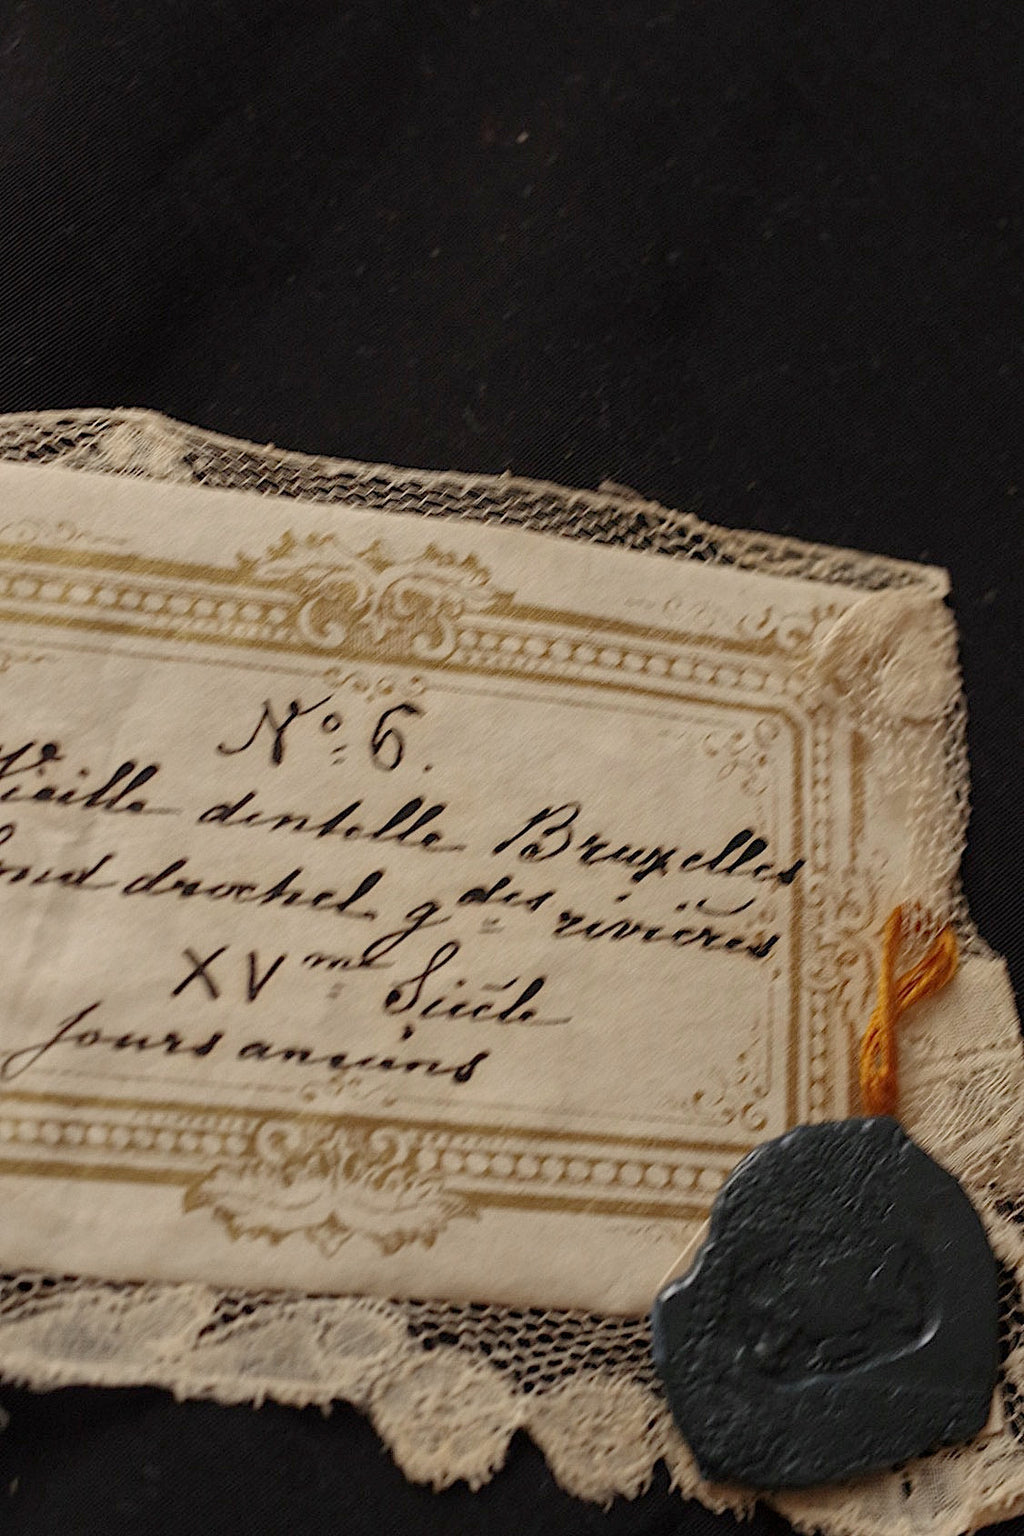 Nº 6.
Vieille dentelle Bruxelles
fond drochel gdes rivières
XVme Siècle
jours anciens